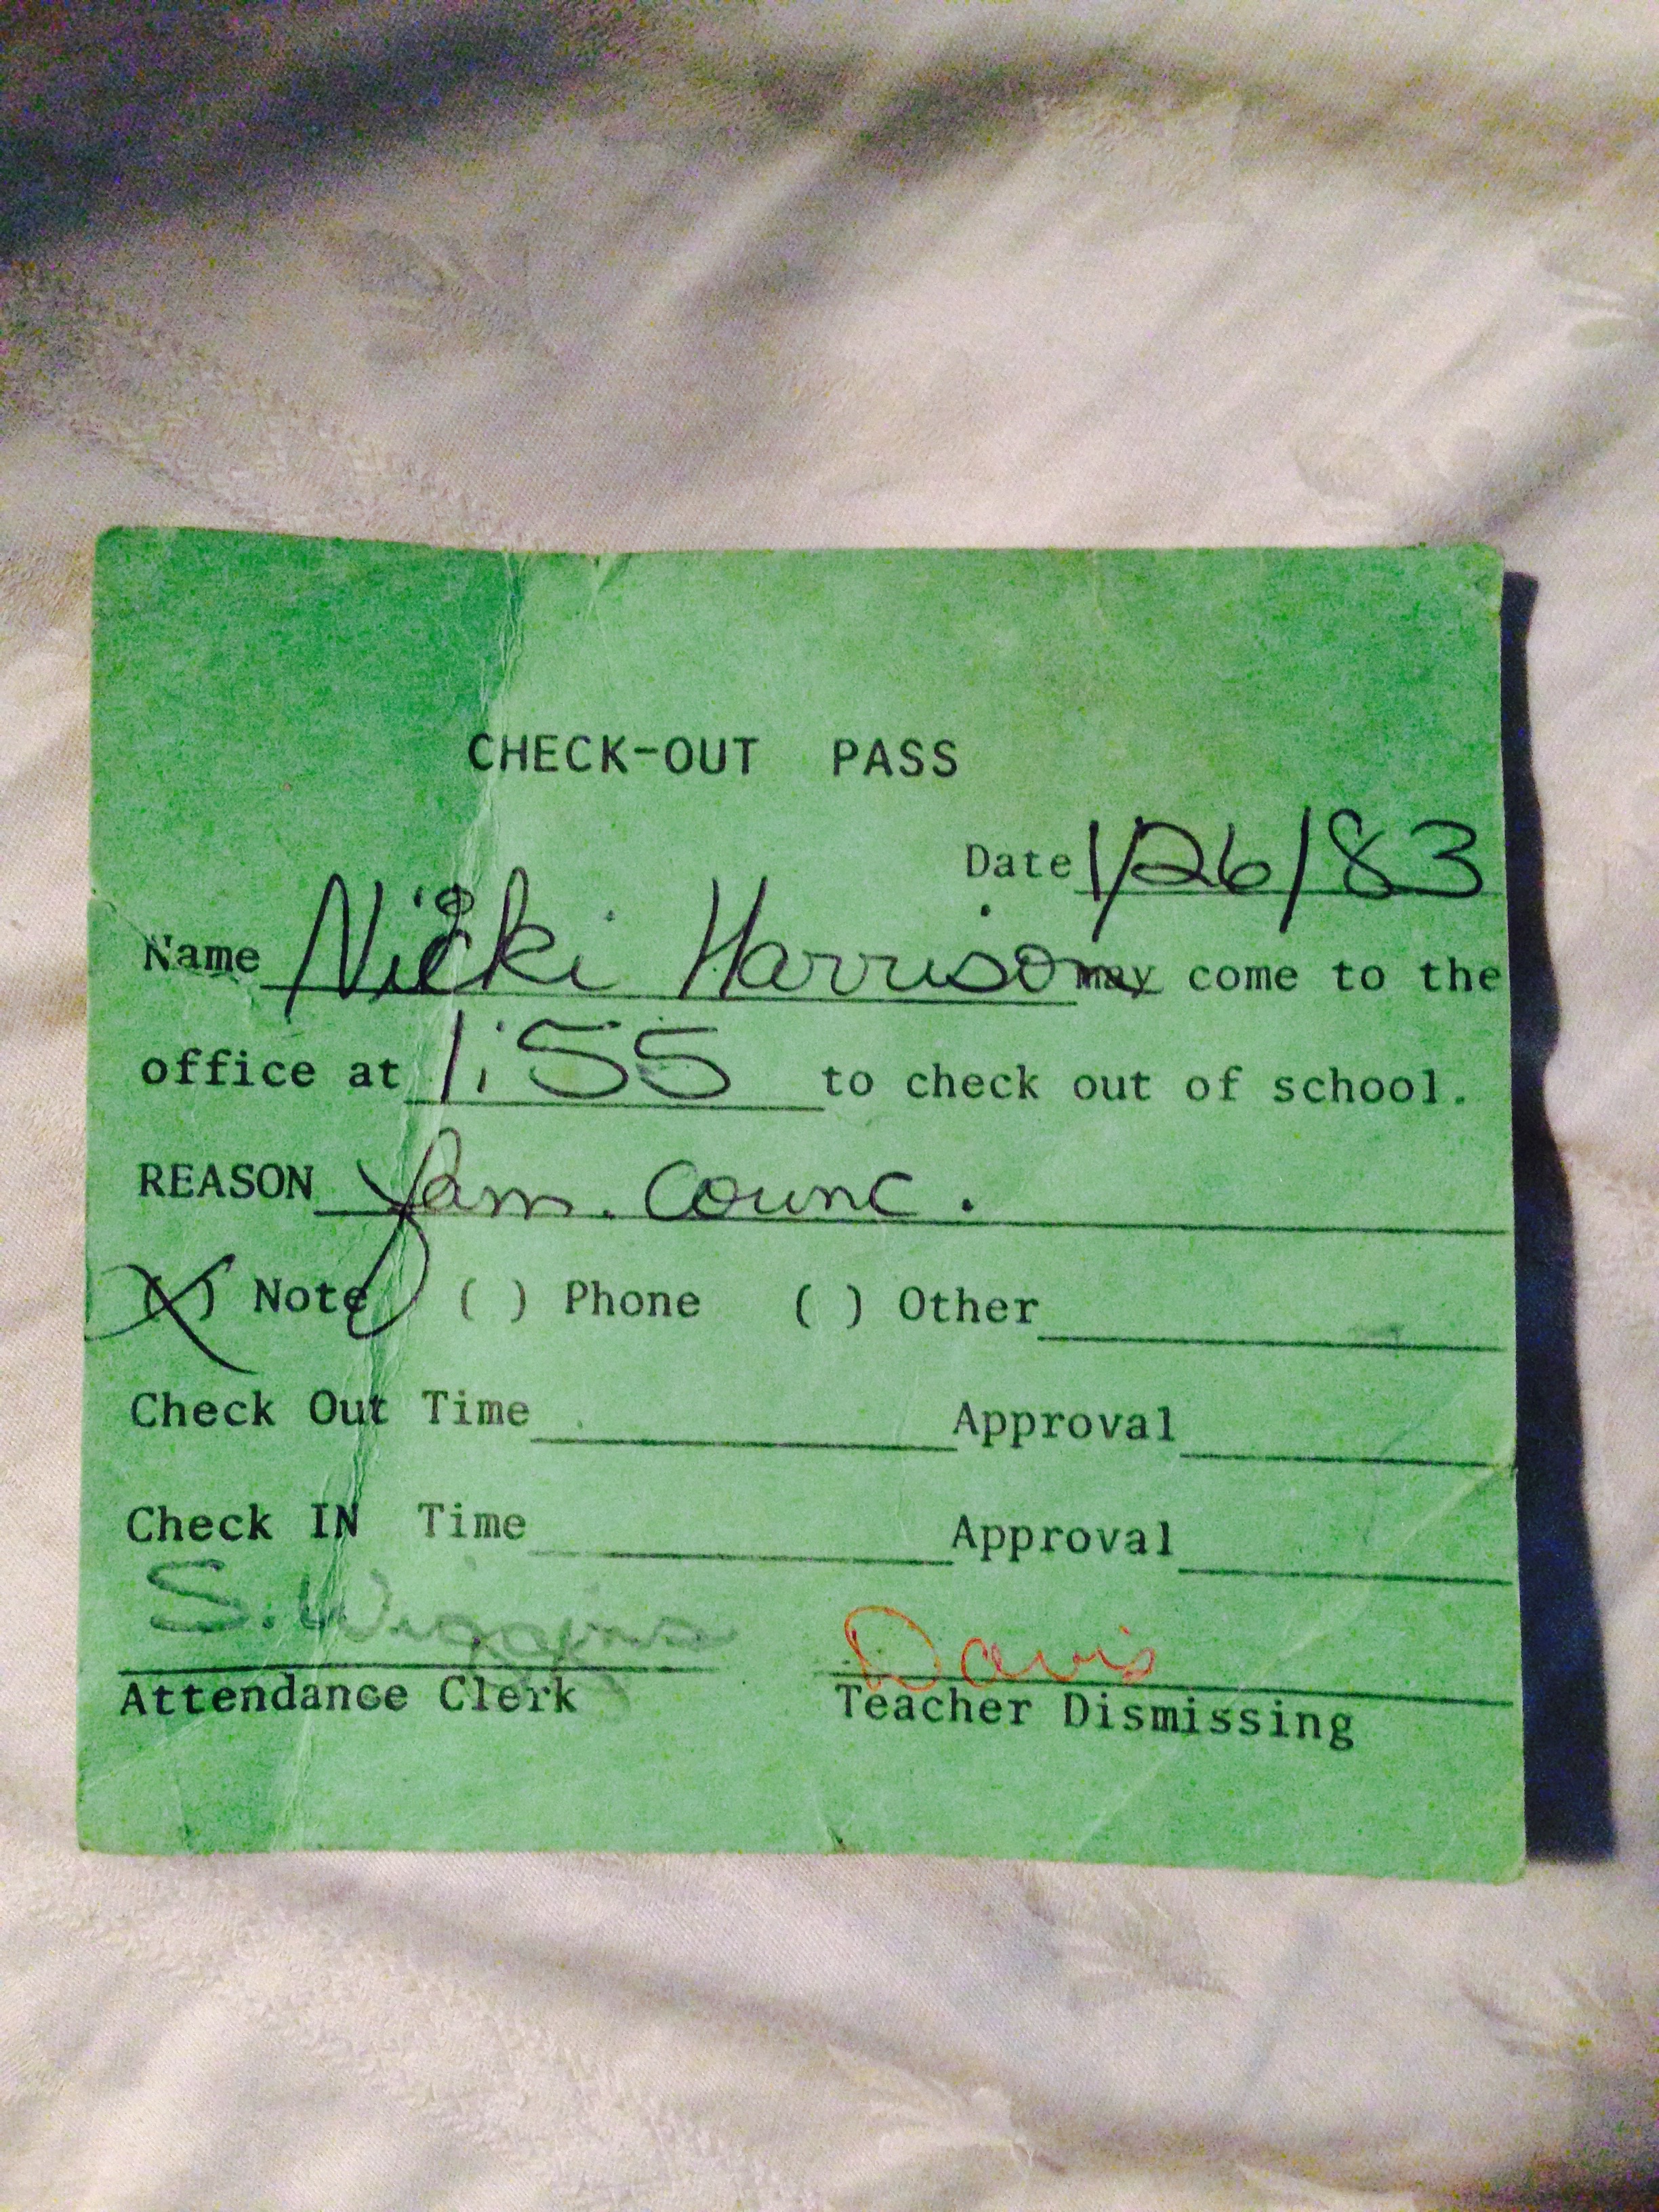 CHECK-OUT PASS
Date 1/26/83
Name Nicki Harrison may come to the
office at 1:55 to check out of school.
REASON fam. counc.
(X) Note ( ) Phone ( ) Other
Check Out Time Approval
Check IN Time Approval
S. Wiggins Davis
Attendance Clerk Teacher Dismissing